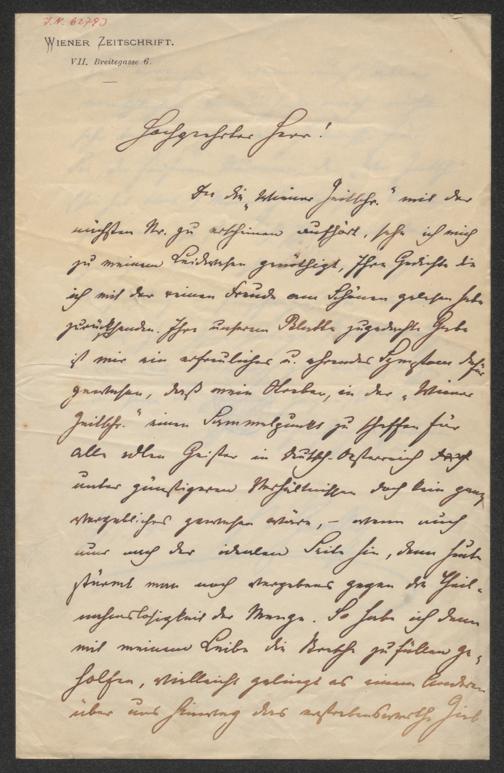 J.N. 62793
WIENER ZEITSCHRIFT.
VII. Breitegasse 6.
Hochgeehrter Herr!
Da die „Wiener Zeitschr." mit der
nächsten Nr. zu erscheinen aufhört, sehe ich mich
zu meinem Leidwesen genöthigt, Ihre Gedichte die
ich mit der reinen Freude am Schönen gelesen habe
zurückzusenden. Ihre unserem Blatte zugedachte Gabe
ist mir ein erfreuliches u. ehrendes Symptom dafür
gewesen, daß mein Streben, in der „Wiener
Zeitschr." einen Sammelpunkt zu schaffen für
alle edlen Geister in Deutsch-Oesterreich
unter günstigeren Verhältnissen doch kein ganz
vergebliches gewesen wäre, – wenn auch
nur nach der idealen Seite hin, denn heute
stürmt man noch vergebens gegen die Theil-
nahmslosigkeit der Menge. So habe ich denn
mit meinem Leibe die Bresche zu füllen ge-
holfen, vielleicht gelingt es einem Anderen
über uns hinweg das erstrebenswerthe Ziel